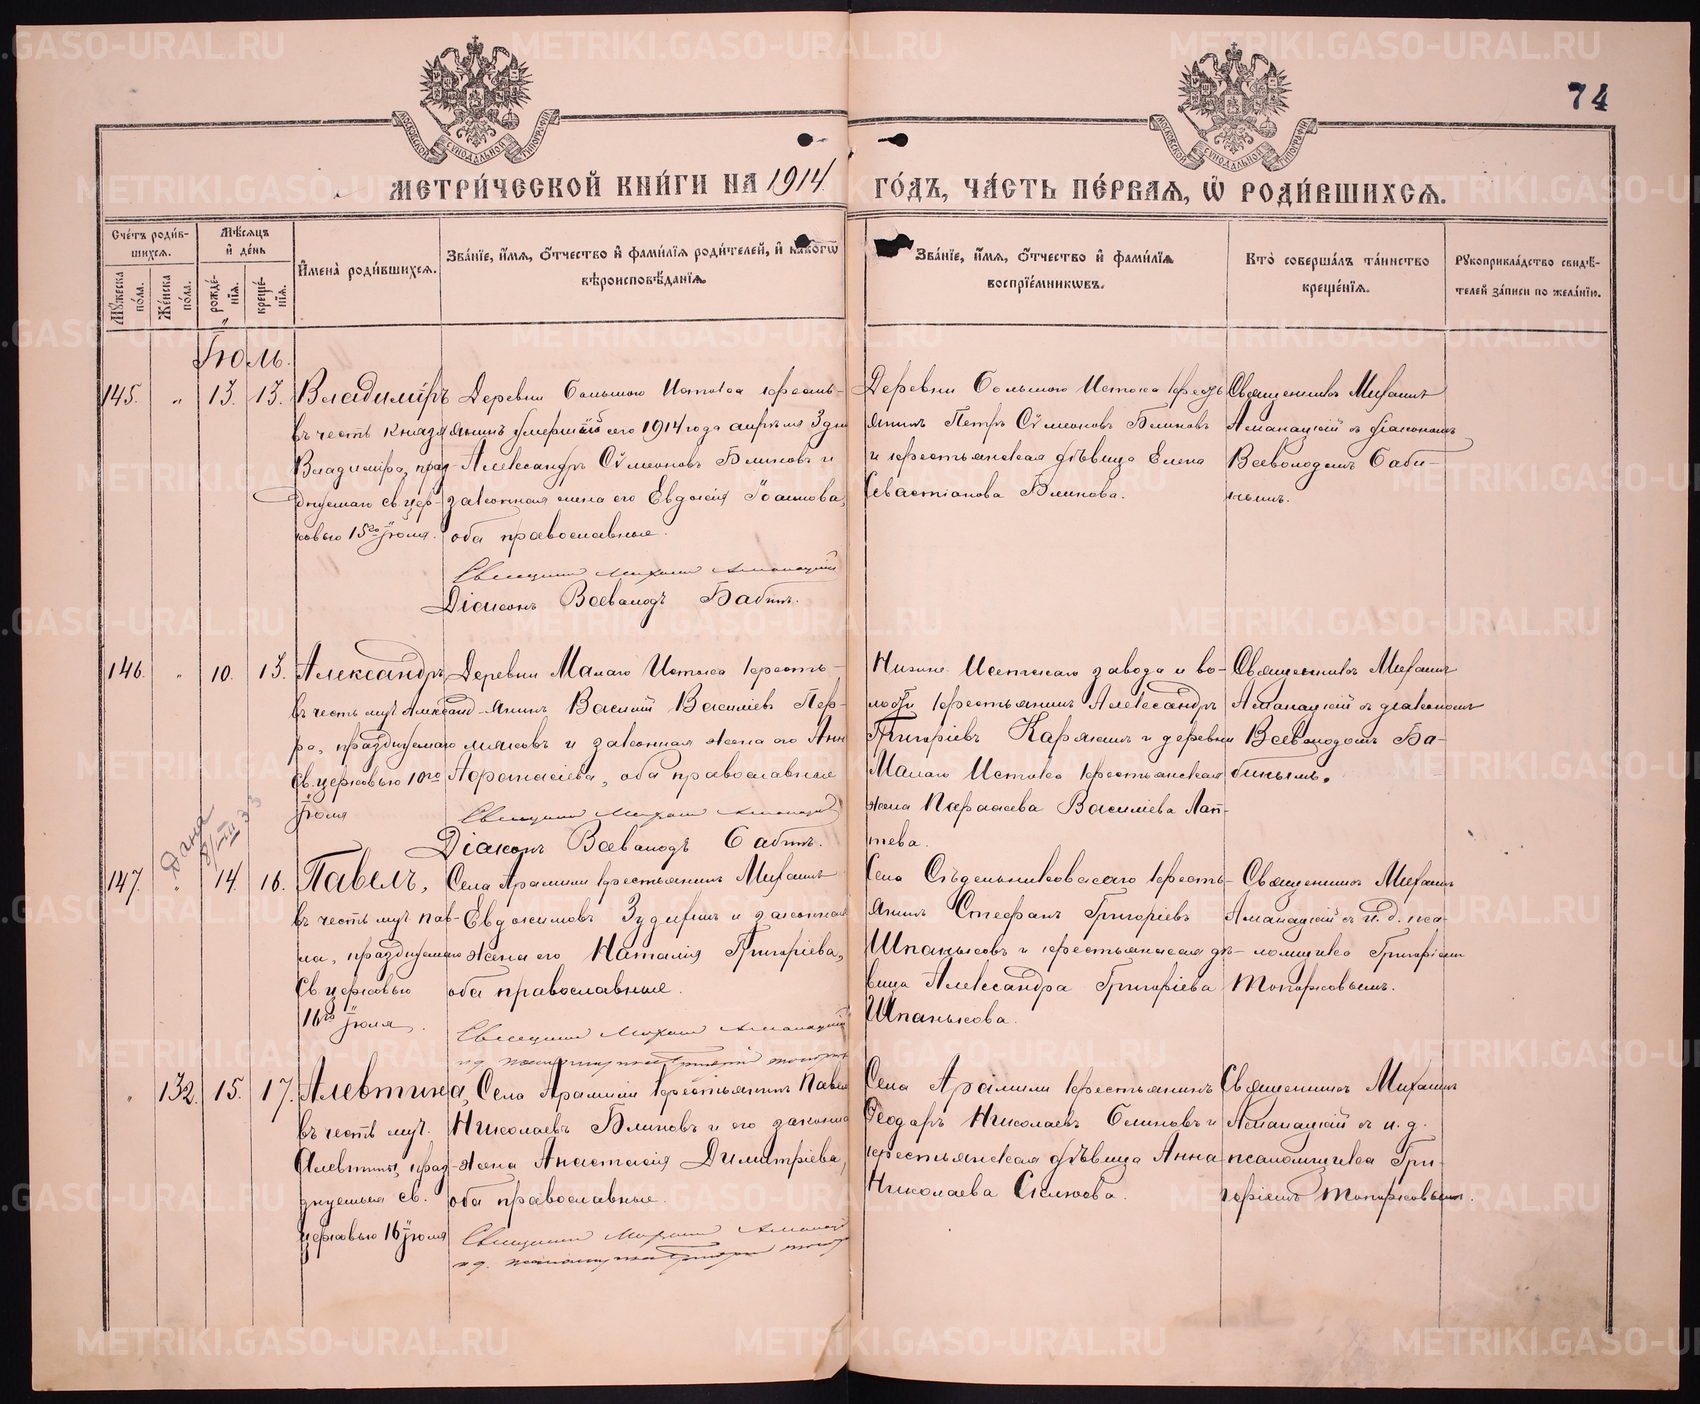 74
МЕТРИ́ЧЕСКОЙ КНИ́ГИ НА 1914 ГО́ДЪ, ЧА́СТЬ ПЕ́РВАЯ, Ѿ РОДИ́ВШИХСЯ.
Сче́тъ роди́в-
шихся.
Мѣ́сяцъ
и де́нь
Му́жеска по́ла.
Же́нска по́ла.
рожде́-
нїя.
креще́-
нїя.
Имена̀ роди́вшихся.
Зва́нїе, и́мя, о́тчество и фами́лїя роди́телей, и како́гѡ
вѣроисповѣ́данїя.
Зва́нїе, и́мя, о́тчество и фами́лїя
воспрїе́мникѡвъ.
Кто̀ соверша́лъ та́инство
креще́нїя.
Рꙋкоприкла́дство свидѣ́-
телей за́писи по жела́нїю.
Іюль.
145. " 13. 13.
Владиміръ
въ честь князя
Владиміра, праз-
днуемаго св. цер-
ковью 15го іюля.
Деревни Большого Истока кресть-
янинъ умершій сего 1914 года апрѣля 3 дня
Александръ Сѵмеоновъ Блиновъ и
законная жена его Евдокія Іоаннова,
оба православные.
Священникъ Михаилъ
Діаконъ Всеволодъ Бабинъ.
Деревни Большого Истока крест-
янинъ Петръ Сѵмеоновъ Блиновъ
и крестьянская дѣвица Елена
Севастіанова Блинова.
Священникъ Михаилъ
съ діакономъ
Всеволодомъ Баби-
нымъ.
146. " 10. 13.
Александръ
въ честь муч. Александ-
ра, празднуемаго
Св. церковью 10го
іюля
Деревни Малаго Истока кресть-
янинъ Василій Васильевъ Пер-
мяковъ и законная жена его Анна
Афанасіева, оба православные
Священникъ Михаилъ
Діаконъ Всеволодъ Бабинъ.
Нижне-Исетскаго завода и во-
лости крестьянинъ Александръ
Григоріевъ Карякинъ и деревни
Малаго Истока крестьянская
жена Параскева Василіева Лап-
тева.
Священникъ Михаилъ
съ діакономъ
Всеволодомъ Ба-
бинымъ.
Дана
147. " 14. 16.
Павелъ,
въ честь муч. Пав-
ла, празднуемаго
Св. церковью
16го іюля.
Села Арамили крестьянинъ Михаилъ
Евдокимовъ и законная
жена его Наталія Григоріева,
оба православные.
Священникъ Михаилъ
Села крестья-
янинъ Стефанъ Григоріевъ
Шпаньковъ и крестьянская дѣ-
вица Александра Григоріева
Шпанькова.
Священникъ Михаилъ
съ и. д. пса-
ломщика Григоріемъ
Топорковымъ.
" 132. 15. 17.
Алевтина,
въ честь муч.
Алевтины, праз-
днуемыя св.
церковью 16 іюля
Села Арамили крестьянинъ Павелъ
Николаевъ Блиновъ и его законная
жена Анастасія Димитріева,
оба православные.
Священникъ Михаилъ
Села Арамили крестьянинъ
Ѳеодоръ Николаевъ Блиновъ и
крестьянская дѣвица Анна
Николаева
Священникъ Михаилъ
съ и. д.
псаломщика Гри-
горіемъ Топорковымъ.